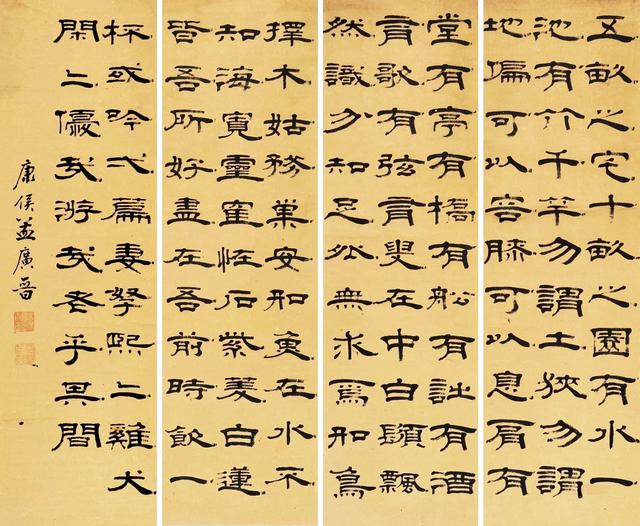 五畝之宅十畝之園有水一
池有竹千竿勿謂土狹勿謂
地偏可以容膝可以息肩有
堂有亭有橋有船有有酒
有歌有弦有叟在中白須飄
然識分知足外無求焉如鳥
擇木姑務巢安如魚在水不
知海寬靈隺怪石紫菱白蓮
皆吾所好盡在吾前時飲一
杯或吟弌篇妻孥熙二雞犬
閑二優哉游哉老乎其間
康侯孟廣晉